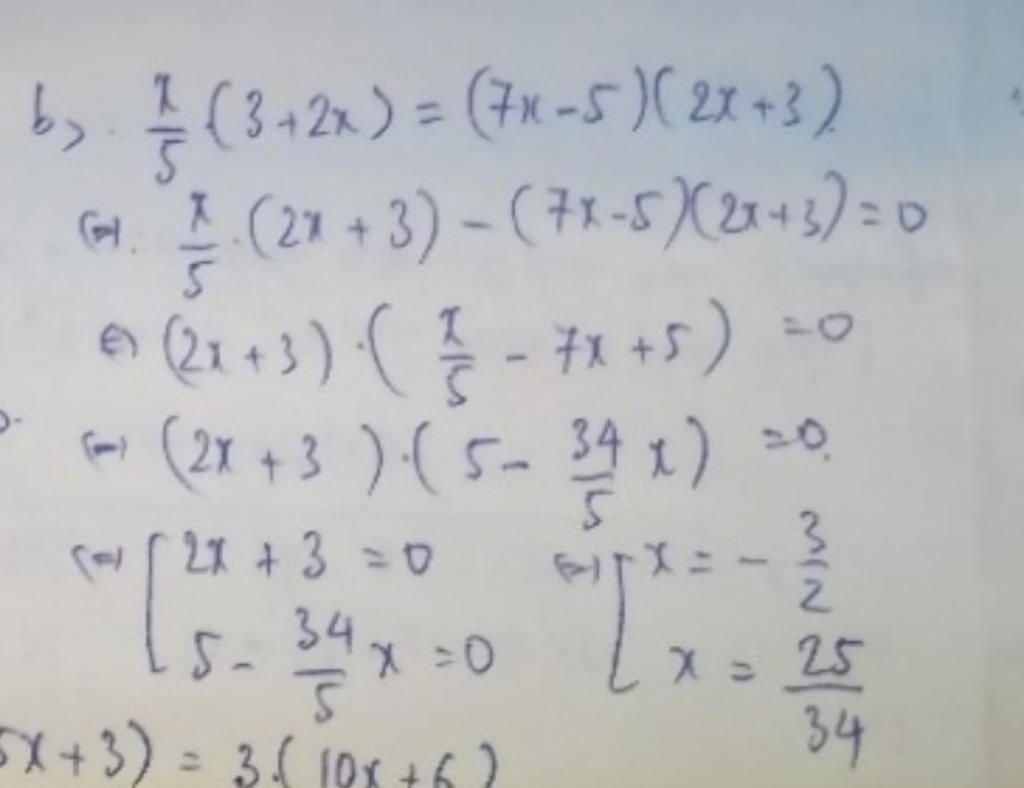 b, x/5 (3+2x) = (7x-5)(2x+3)
(=). x/5 .(2x + 3) - (7x-5)(2x+3) = 0
(=) (2x+3).( x/5 - 7x +5) =0
(=) (2x + 3 ).( 5- 34/5 x) =0.
(=) [ 2x + 3 = 0 (=) [ x = - 3/2
5- 34/5 x =0 x = 25/34
5x+3) = 3.( 10x+6)